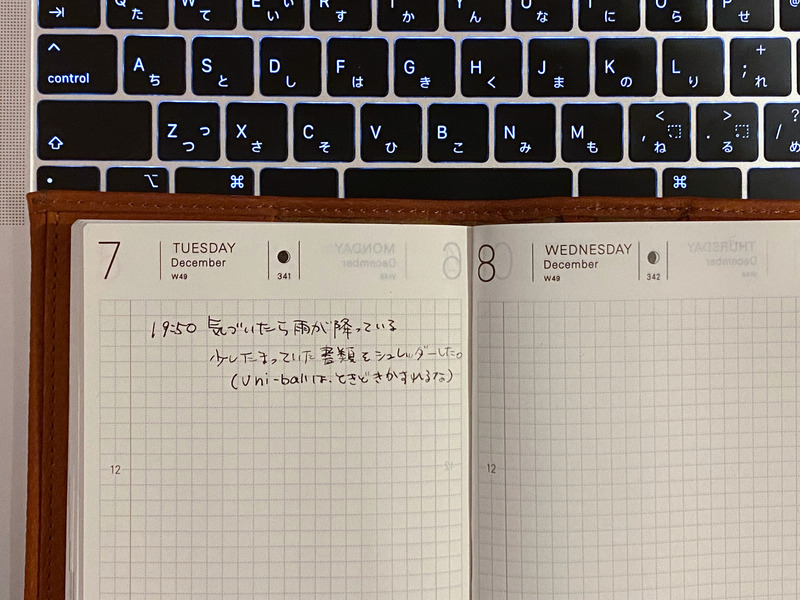 た て い す か ん な に ら せ
control A ち S と D し F は G き H く J ま K の L り ; + れ
Z つ っ X さ C そ V ひ B こ N み M も , < ね . > る / ? め
⌥ ⌘ ⌘
7 TUESDAY
December
W49
341
MONDAY 6
December
W49
8 WEDNESDAY
December
W49
342
THURSDAY
December
W49
19:50 気づいたら雨が降っている
少したまっていた書類をシュレッダーした。
(Uni-ballは、ときどきかすれるな)
12
12